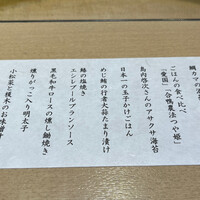 鯛カマの
ごはんの食べ比べ
「愛国」「合鴨農法つや姫」
島内啓次さんのアサクサ海苔
日本一の玉子かけごはん
めじ鮪の行者大蒜たまり漬け
鰆の塩焼き
エシレブールブランソース
黒毛和牛ロースの燻し鍋焼き
燻りがっこ入り明太子
小松菜と榎木のお味噌汁